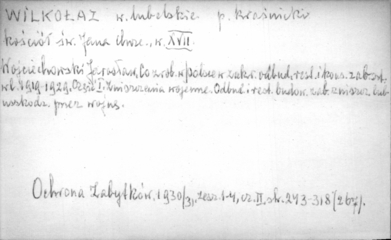 WILKOŁAZ w. lubelskie. p. kraśnicki
kościół św. Jana Chrz., w. XVII
Wojciechowski Jarosław, Co zrob. w Polsce w zakr. odbud. rest. i kons. zab. szt.
w l. 1919-1929. Część I. Zniszczenia wojenne. Odbud. i rest. budow. zab. zniszcz. lub
uszkodz. przez wojnę.
Ochrona Zabytków. 1930/31, zesz. 1-4, cz. II. str. 243-318 /267/.